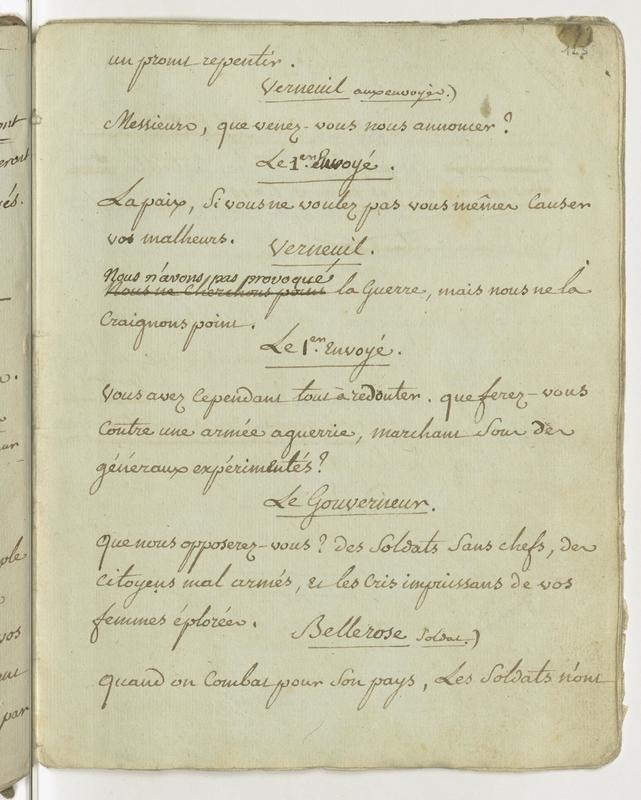 125
un promt repentir.
Verneuil aux envoyés.)
Messieurs, que venez-vous nous annoncer?
Le 1er. Envoyé.
La paix, si vous ne voulez pas vous mêmes causer
vos malheurs.
Verneuil.
Nous n'avons pas provoqué
Nous ne Cherchons point la Guerre, mais nous ne la
Craignons point.
Le 1er. Envoyé.
Vous avez Cependant tout à redouter. que ferez-vous
Contre une armée aguerrie, marchant sous des
généraux expérimentés?
Le Gouverneur.
Que nous opposerez-vous? des Soldats sans chefs, des
Citoyens mal armés, et les Cris impuissans de vos
femmes éplorées.
Bellerose Soldat.)
Quand on Combat pour son pays, les Soldats n'ont